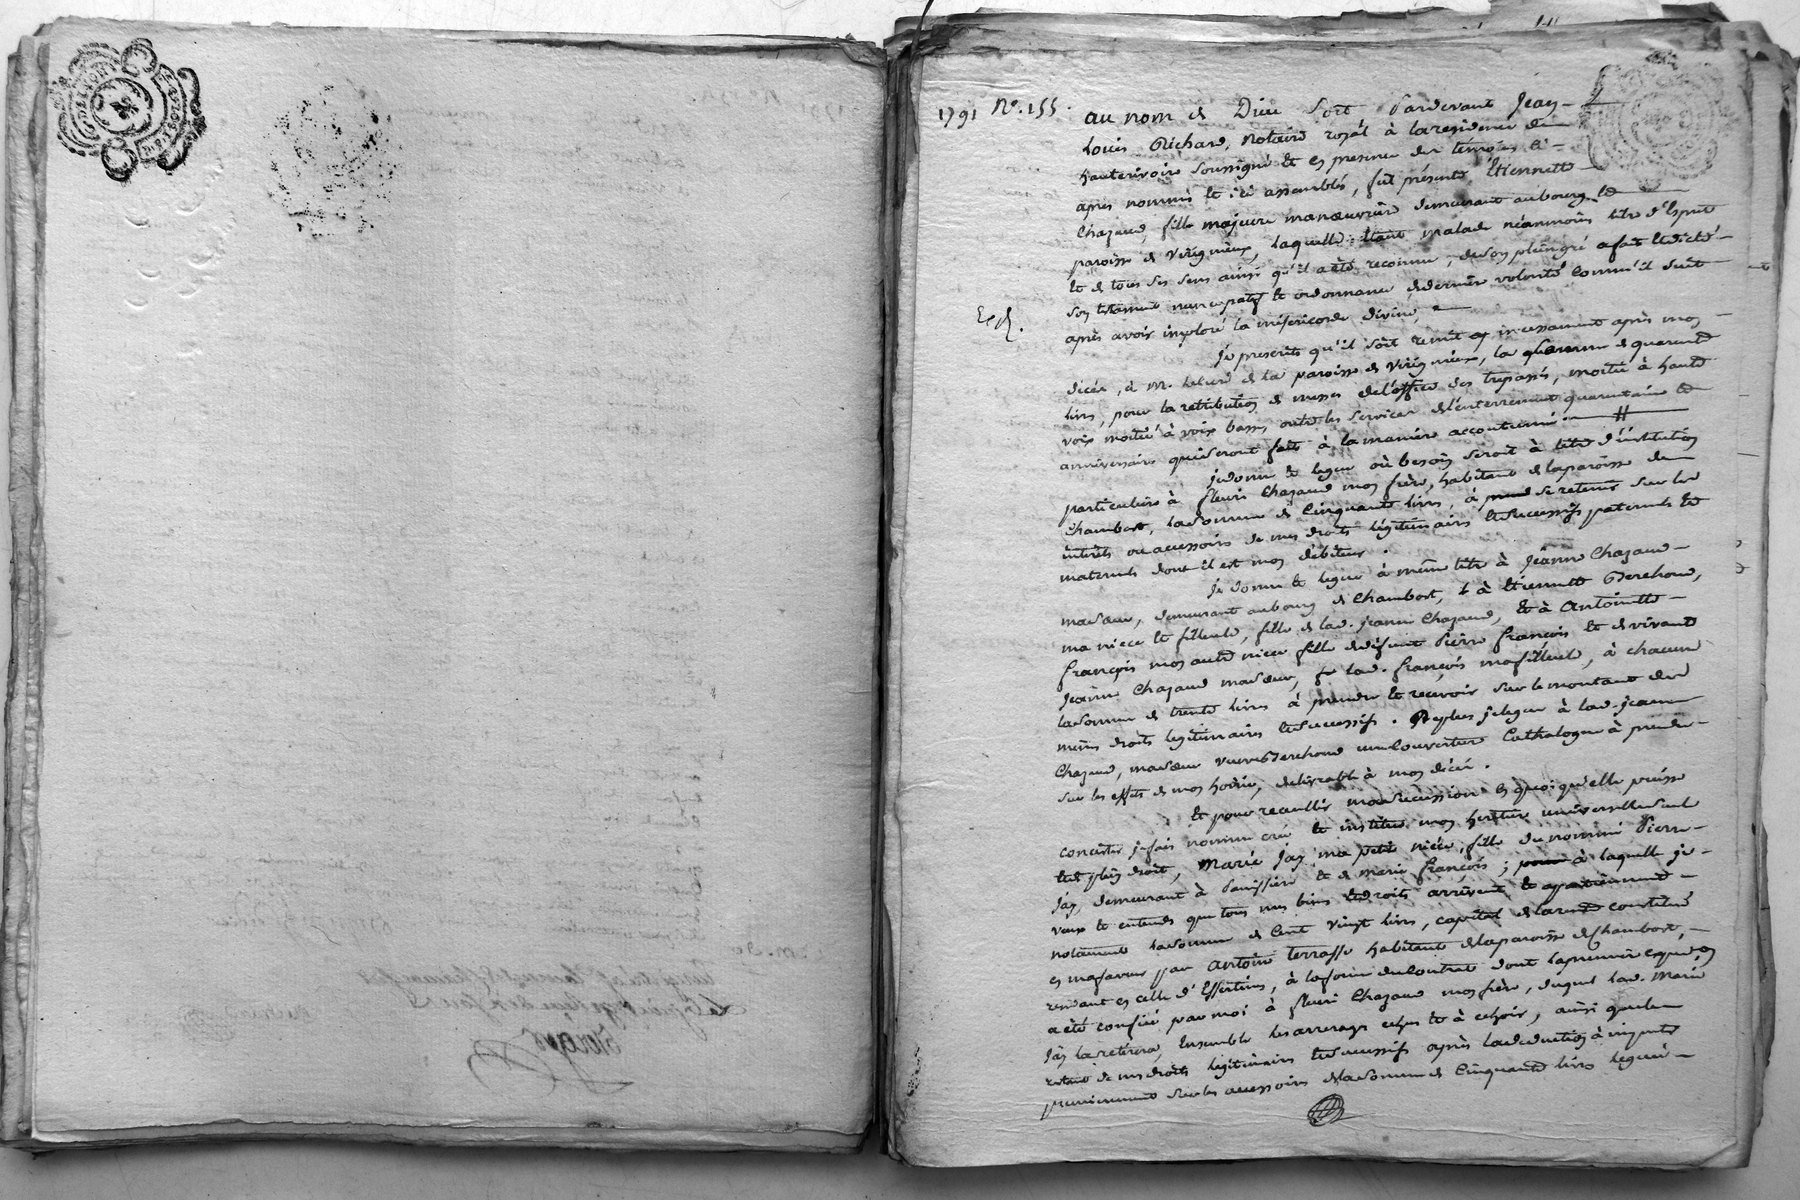 1791 N°. 155.
au nom de Dieu soit Pardevant Jean
Louis Richard, Notaire royal à la residence de
hauterivoire soussigné et en presence des temoins ci
apres nommés et ici assemblés, fut présente Etiennette
Chazaud, fille majeure manoeuvrière demeurant au bourg et
paroisse de virigneux, laquelle étant malade néanmoins libre d'Esprit
et de tous ses sens ainsi qu'il a été reconnu, de son plein gré a fait et dicté
son testament nuncupatif et ordonnance de dernière volonté comme il suit
après avoir imploré la miséricorde divine,
Exp.
je prescrits qu'il soit remit incessament après mon
décés, à M. le curé de la paroisse de virigneux, la somme de quarante
livres, pour la retribution de messes de l'office des trepassés, moitié à haute
voix moitié à voix basses outre les services de l'enterrement quarantaine et
anniversaire qui seront faits à la manière accoutumée
je donne et legue où besoin seroit à titre d'institution
particulière à fleuri Chazaud mon frère, habitant de la paroisse de
Chambost, la somme de Cinquante livres, à se retenir sur les
intérêts ou accessoirs de mes droits légitimaires et successifs paternels et
maternels dont il est mon débiteur.
Je donne et legue à même titre à jeanne Chazaud
ma soeur, demeurant au bourg de Chambost, à Etiennette Berchoud,
ma niece et filleule, fille de lad. jeanne Chazaud, et à Antoinette
françois mon autre niece fille de défunt Pierre françois et de vivante
jeanne Chazaud ma soeur, lad. françois ma filleule, à chacune
la somme de trente livres à prendre et recevoir sur le montant des
mêmes droits legitimaires et successifs. De plus je legue à lad. jeanne
Chazaud, ma soeur veuve Berchoud une couverture Cathalogne à prendre
sur les effets de mon hoirie, delivrable à mon décés.
Et pour recueillir ma succession en quoi qu'elle puisse
consister je fais nomme crée et institue mon heritier universelle seul
et de plein droit, Marie Jay ma petite nièce, fille du nommé Pierre
Jay, demeurant à Panissiere et de marie françois; à laquelle je
veux et entends que tous mes biens et droits arrivent et apartiennent
notament la somme de Cent vingt livres, capital de la rente constitué
en ma faveur par Antoine terrasse habitant de la paroisse de Chambost,
rendant en celle d'Essertines, à la forme du Contrat dont la premiere expedon
a été confiée par moi à fleuri Chazaud mon frère, duquel lad. Marie
Jay la retirera, Ensemble les arrerages echus et à echoir, ainsi que le
restant de mes droits legitimaires et successifs après la deduction à imputer
premierement sur les accessoirs de la somme de Cinquante livres leguée